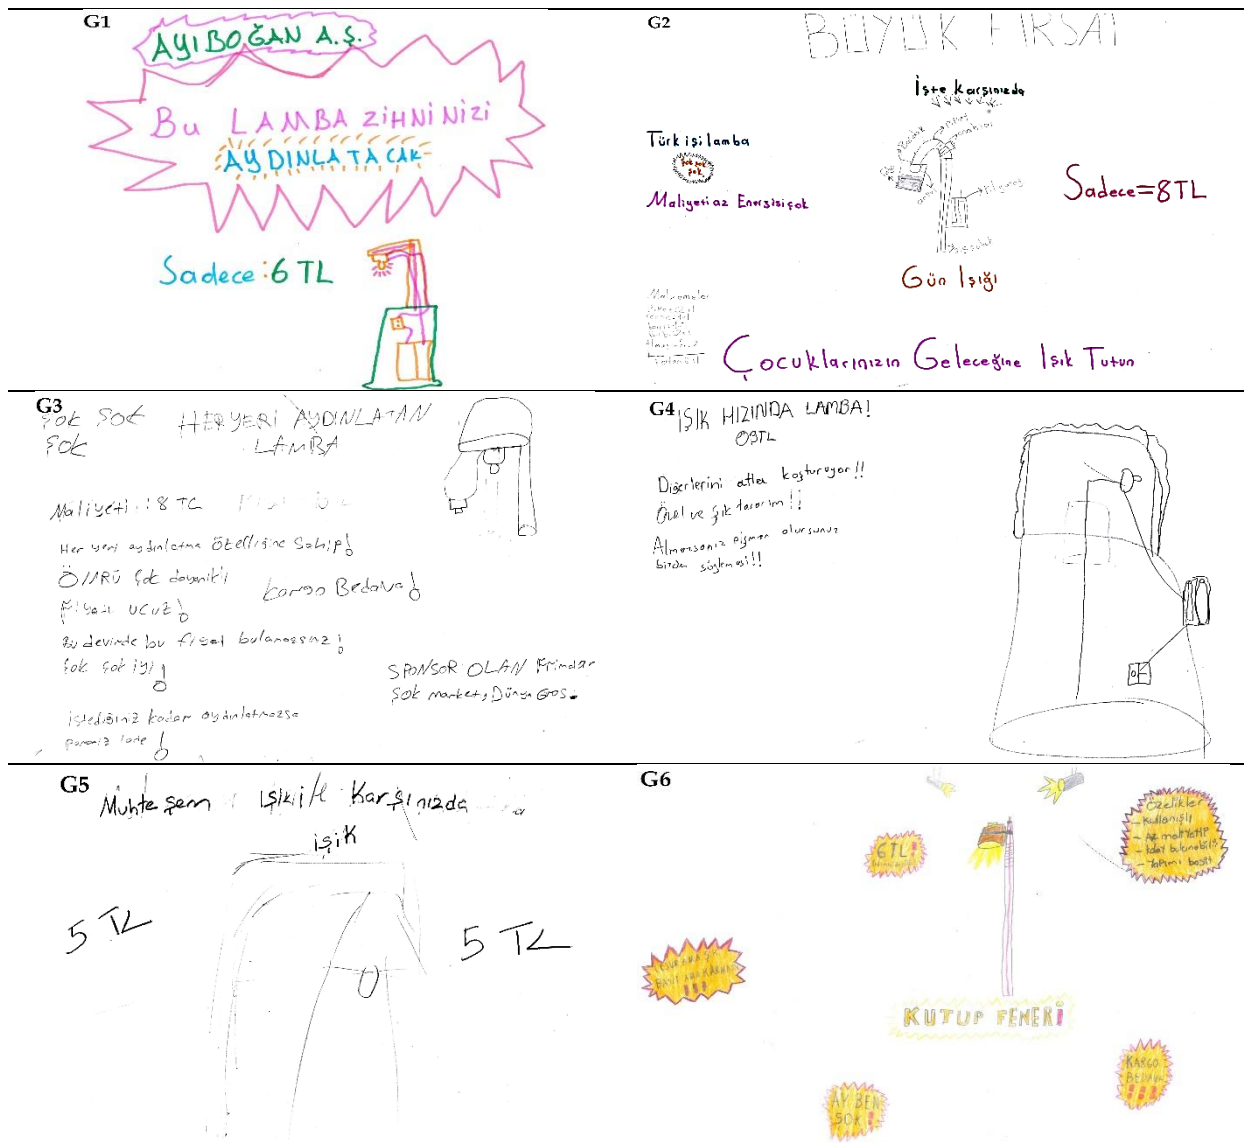 G1
AYIBOĞAN A.Ş.
Bu LAMBA ZİHNİNİZİ
AYDINLATACAK
Sadece:6 TL
G2
BÜYÜK FIRSAT
İşte Karşınızda
Türk işi lamba
Şok şok
şok
Maliyeti az Enerjisi çok
Sadece=8TL
Gün Işığı
Malzemeler
Çocuklarınızın Geleceğine Işık Tutun
G3
ŞOK ŞOK
ŞOK
HER YERİ AYDINLATAN
LAMBA
Maliyeti: 8 TL
Her yeri aydınlatma özelliğine Sahip!
ÖMRÜ çok dayanıklı
Kargo Bedava!
Fiyatı UCUZ!
Bu devirde bu fiyat bulamassız!
çok çok iyi!
SPONSOR OLAN Frimalar
Şok market, Dünya Gros.
İstediğiniz kadar aydınlatmazsa
paranız iade!
G4
IŞIK HIZINDA LAMBA!
Diğerlerini atla koşturuyor!!
Özel ve şık tasarım!!
Almazsanız pişman olursunuz
bizden söylemesi!!
G5
Muhteşem ışık ile Karşınızda
ışık
5 TL
5 TL
G6
Özelikler
- Kullanışlı
- Az maliyetli
- Yapımı basit
6TL!
KUTUP FENERİ
KARGO
BEDAVA
!!!
AY BEN
ŞOK!